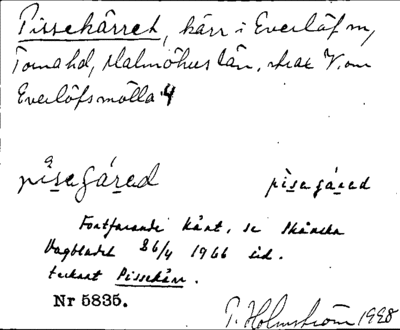 Pissekärret, kärr i Everlöf sn,
Torna hd, Malmöhus län, strax V. om
Everlöfs mölla 4
pisagárad pìsagárad
Fortfarande känt, se Skånska
Dagbladet 26/4 1966 sid.
tecknat Pissekärr.
Nr 5835.
P. Holmström 1928